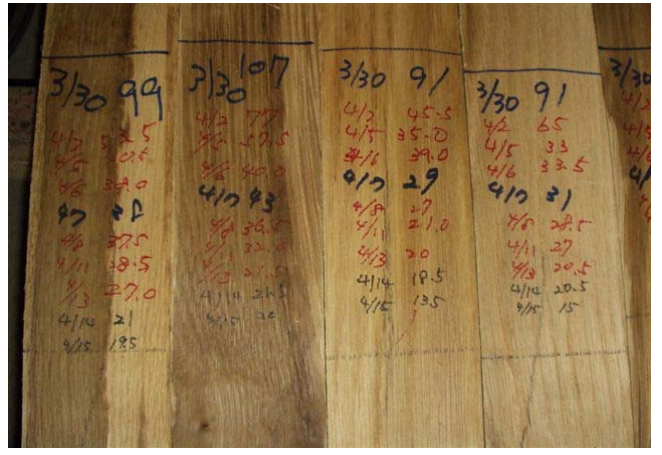 3/30 99
4/5
4/6 38.0
4/7 38
4/8 37.5
4/11 28.5
4/13 27.0
4/14 21
4/15 19.5
3/30 107
4/2 77
4/5 57.5
4/6 40.0
4/7 43
4/8 36.5
4/11 32.0
4/13 21.5
4/14 21.5
4/15
3/30 91
4/2 45.5
4/5 35.0
4/6 39.0
4/7 29
4/8 27
4/11 21.0
4/13 20
4/14 18.5
4/15 13.5
3/30 91
4/2 65
4/5 33
4/6 33.5
4/7 31
4/8 28.5
4/11 27
4/13 20.5
4/14 20.5
4/15 15
3/30